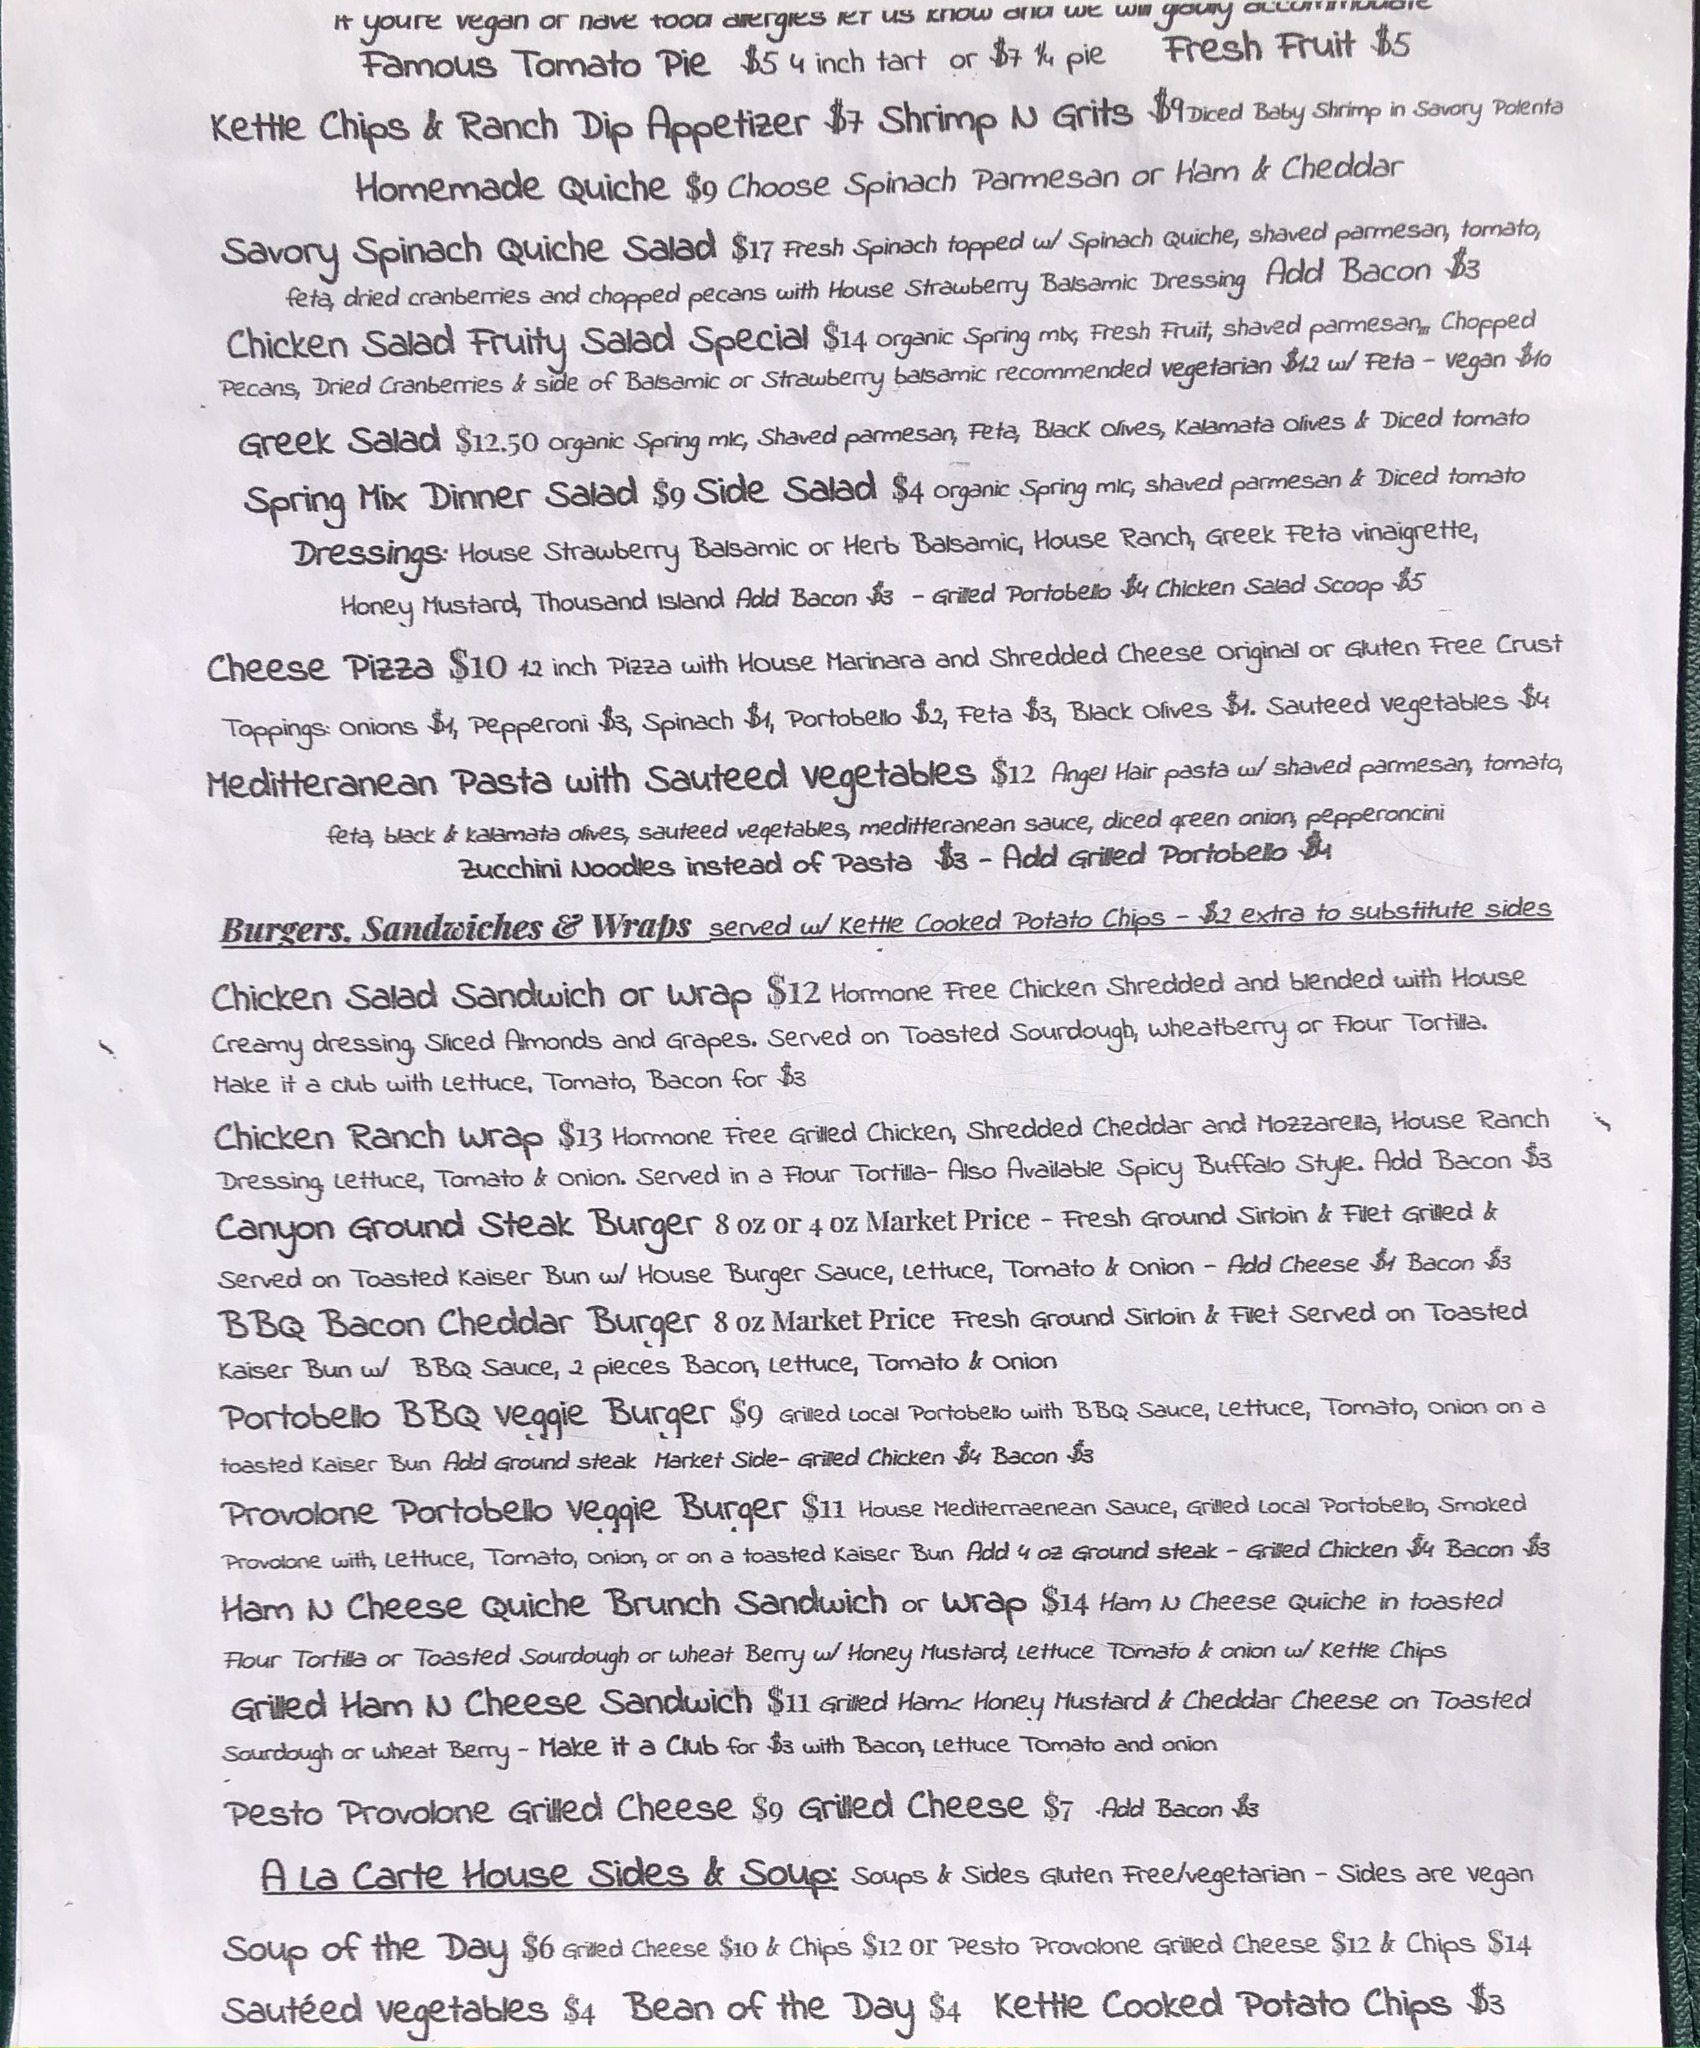 If you're vegan or have food allergies let us know and we will gladly accommodate
Famous Tomato Pie $5 4 inch tart or $7 ¼ pie Fresh Fruit $5
Kettle Chips & Ranch Dip Appetizer $7 Shrimp N Grits $9 Diced Baby Shrimp in Savory Polenta
Homemade Quiche $9 Choose Spinach Parmesan or Ham & Cheddar
Savory Spinach Quiche Salad $17 Fresh Spinach topped w/ Spinach Quiche, shaved parmesan, tomato,
feta, dried cranberries and chopped pecans with House Strawberry Balsamic Dressing Add Bacon $3
Chicken Salad Fruity Salad Special $14 organic Spring mix, Fresh Fruit, shaved parmesan,,, Chopped
Pecans, Dried Cranberries & side of Balsamic or Strawberry balsamic recommended vegetarian $12 w/ Feta - vegan $10
Greek Salad $12.50 organic Spring mic, Shaved parmesan, Feta, Black olives, Kalamata olives & Diced tomato
Spring Mix Dinner Salad $9 Side Salad $4 organic Spring mic, shaved parmesan & Diced tomato
Dressings: House Strawberry Balsamic or Herb Balsamic, House Ranch, Greek Feta vinaigrette,
Honey Mustard, Thousand Island Add Bacon $3 - Grilled Portobello $4 Chicken Salad Scoop $5
Cheese Pizza $10 12 inch Pizza with House Marinara and Shredded Cheese original or Gluten Free Crust
Toppings: onions $1, Pepperoni $3, Spinach $1, Portobello $2, Feta $3, Black olives $1. Sauteed vegetables $4
Meditteranean Pasta with Sauteed vegetables $12 Angel Hair pasta w/ shaved parmesan, tomato,
feta, black & kalamata olives, sauteed vegetables, meditteranean sauce, diced green onion, pepperoncini
Zucchini Noodles instead of Pasta $3 - Add Grilled Portobello $4
Burgers, Sandwiches & Wraps served w/ Kettle Cooked Potato Chips - $2 extra to substitute sides
Chicken Salad Sandwich or Wrap $12 Hormone Free Chicken Shredded and blended with House
Creamy dressing, Sliced Almonds and Grapes. Served on Toasted Sourdough, wheatberry or Flour Tortilla.
Make it a club with Lettuce, Tomato, Bacon for $3
Chicken Ranch Wrap $13 Hormone Free Grilled Chicken, Shredded Cheddar and Mozzarella, House Ranch
Dressing, Lettuce, Tomato & onion. Served in a Flour Tortilla- Also Available Spicy Buffalo Style. Add Bacon $3
Canyon Ground Steak Burger 8 oz or 4 oz Market Price - Fresh Ground Sirloin & Filet Grilled &
Served on Toasted Kaiser Bun w/ House Burger Sauce, Lettuce, Tomato & onion - Add Cheese $1 Bacon $3
BBQ Bacon Cheddar Burger 8 oz Market Price Fresh Ground Sirloin & Filet Served on Toasted
Kaiser Bun w/ BBQ Sauce, 2 pieces Bacon, Lettuce, Tomato & onion
Portobello BBQ veggie Burger $9 Grilled Local Portobello with BBQ Sauce, Lettuce, Tomato, onion on a
toasted Kaiser Bun Add Ground steak Market Side- Grilled Chicken $4 Bacon $3
Provolone Portobello veggie Burger $11 House Mediterraenean Sauce, Grilled Local Portobello, Smoked
Provolone with, Lettuce, Tomato, onion, or on a toasted Kaiser Bun Add 4 oz Ground steak - Grilled Chicken $4 Bacon $3
Ham N Cheese Quiche Brunch Sandwich or Wrap $14 Ham N Cheese Quiche in toasted
Flour Tortilla or Toasted Sourdough or wheat Berry w/ Honey Mustard, Lettuce Tomato & onion w/ Kettle Chips
Grilled Ham N Cheese Sandwich $11 Grilled Ham< Honey Mustard & Cheddar Cheese on Toasted
Sourdough or wheat Berry - Make it a Club for $3 with Bacon, Lettuce Tomato and onion
Pesto Provolone Grilled Cheese $9 Grilled Cheese $7 Add Bacon $3
A La Carte House Sides & Soup: Soups & Sides Gluten Free/vegetarian - Sides are vegan
Soup of the Day $6 Grilled Cheese $10 & Chips $12 or Pesto Provolone Grilled Cheese $12 & Chips $14
Sautéed vegetables $4 Bean of the Day $4 Kettle Cooked Potato Chips $3